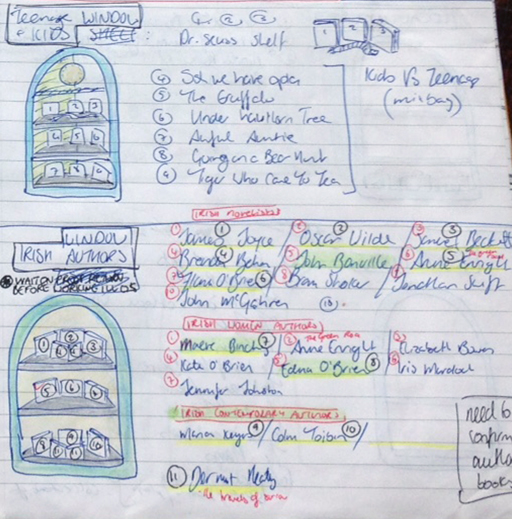 Teenage WINDOW
+ KIDS SHELF :
① ② ③
Dr. Seuss Shelf
1 2 3
Kids Vs Teenage
④
⑤ The Gruffalo
⑥ Under Hawthorn Tree
⑦ Awful Auntie
⑧ Going on a Bear Hunt
⑨ Tiger Who Came To Tea
1 2 3
4 5 6
7 8 9
IRISH Novelists
WINDOW
IRISH AUTHORS
① James Joyce ① / ② Oscar Wilde ② / ③ Samuel Beckett ③
④ Brendan Behan ④ / ⑤ John Banville / ⑥ Anne Enright ⑤
⑦ Flann O'Brien ⑥ / ⑧ Bram Stoker / ⑨ Jonathan Swift
⑩ John McGahern
WAIT ON
BEFORE
IRISH WOMEN AUTHORS
① Maeve Binchy ⑦ / ② Anne Enright / ③ Elizabeth Bowen
The Green Road
④ Kate O'Brien / ⑤ Edna O'Brien ⑧ / ⑥ Iris Murdoch
⑦ Jennifer Johnston
IRISH CONTEMPORARY AUTHORS
Marian Keyes ⑨ / Colm Toibin ⑩ /
⑪ Dermot Healy
need to
confirm
autho
books